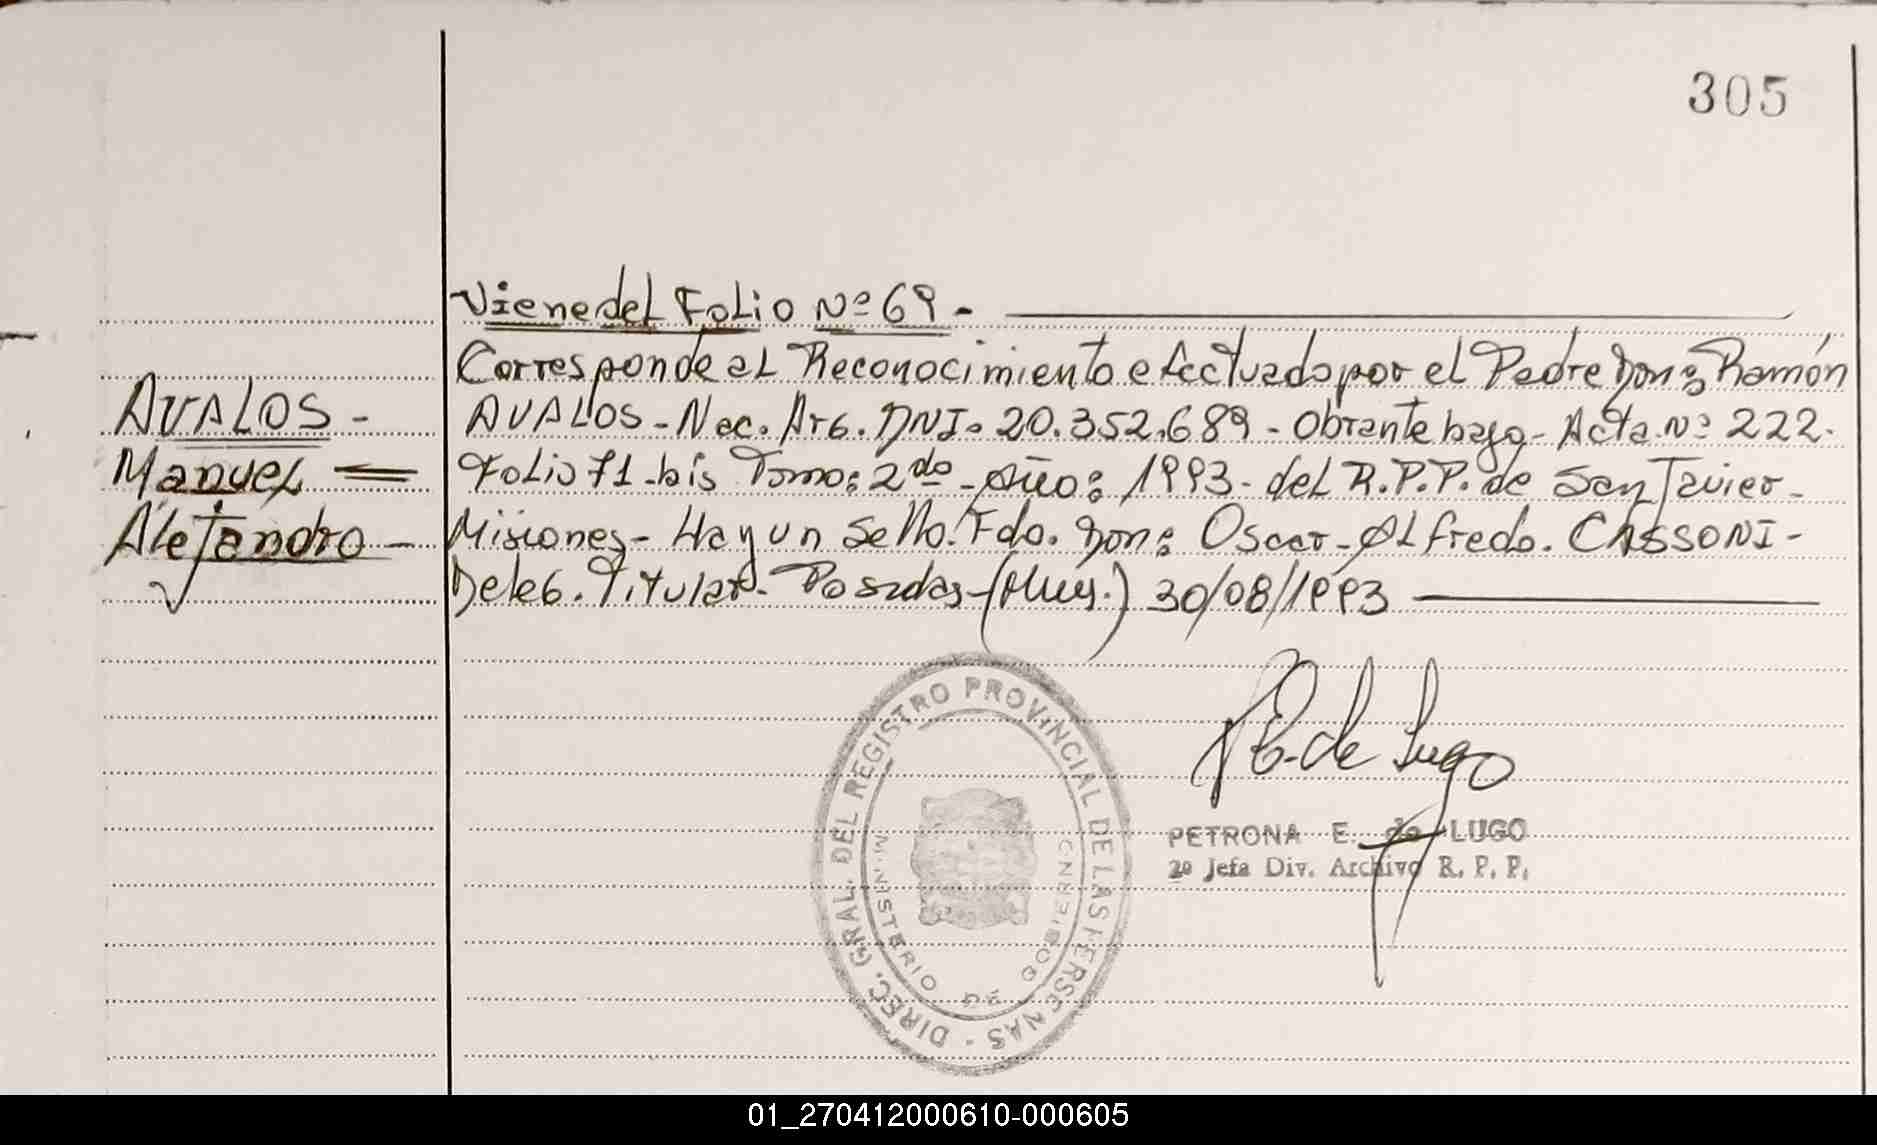 305
Viene del Folio Nº 69 -
Corresponde al Reconocimiento efectuado por el Padre Don: Ramón
AVALOS - Nac. Arg. DNI. 20.352.689 - Obrante bajo - Acta Nº 222.
Folio 71 - bis Tomo: 2do - Año: 1993 - del R.P.P. de San Javier -
Misiones - Hay un Sello. Fdo. Don: Oscar - Alfredo. CASSONI -
Deleg. Titular - Posadas - (Mnes.) 30/08/1993
AVALOS -
Manuel =
Alejandro -
P E. de Lugo
PETRONA E. de LUGO
2º Jefa Div. Archivo R. P. P.
DIREC. GRAL. DEL REGISTRO PROVINCIAL DE LAS PERSENAS -
MINISTERIO DE GOBIERNO
01_270412000610-000605